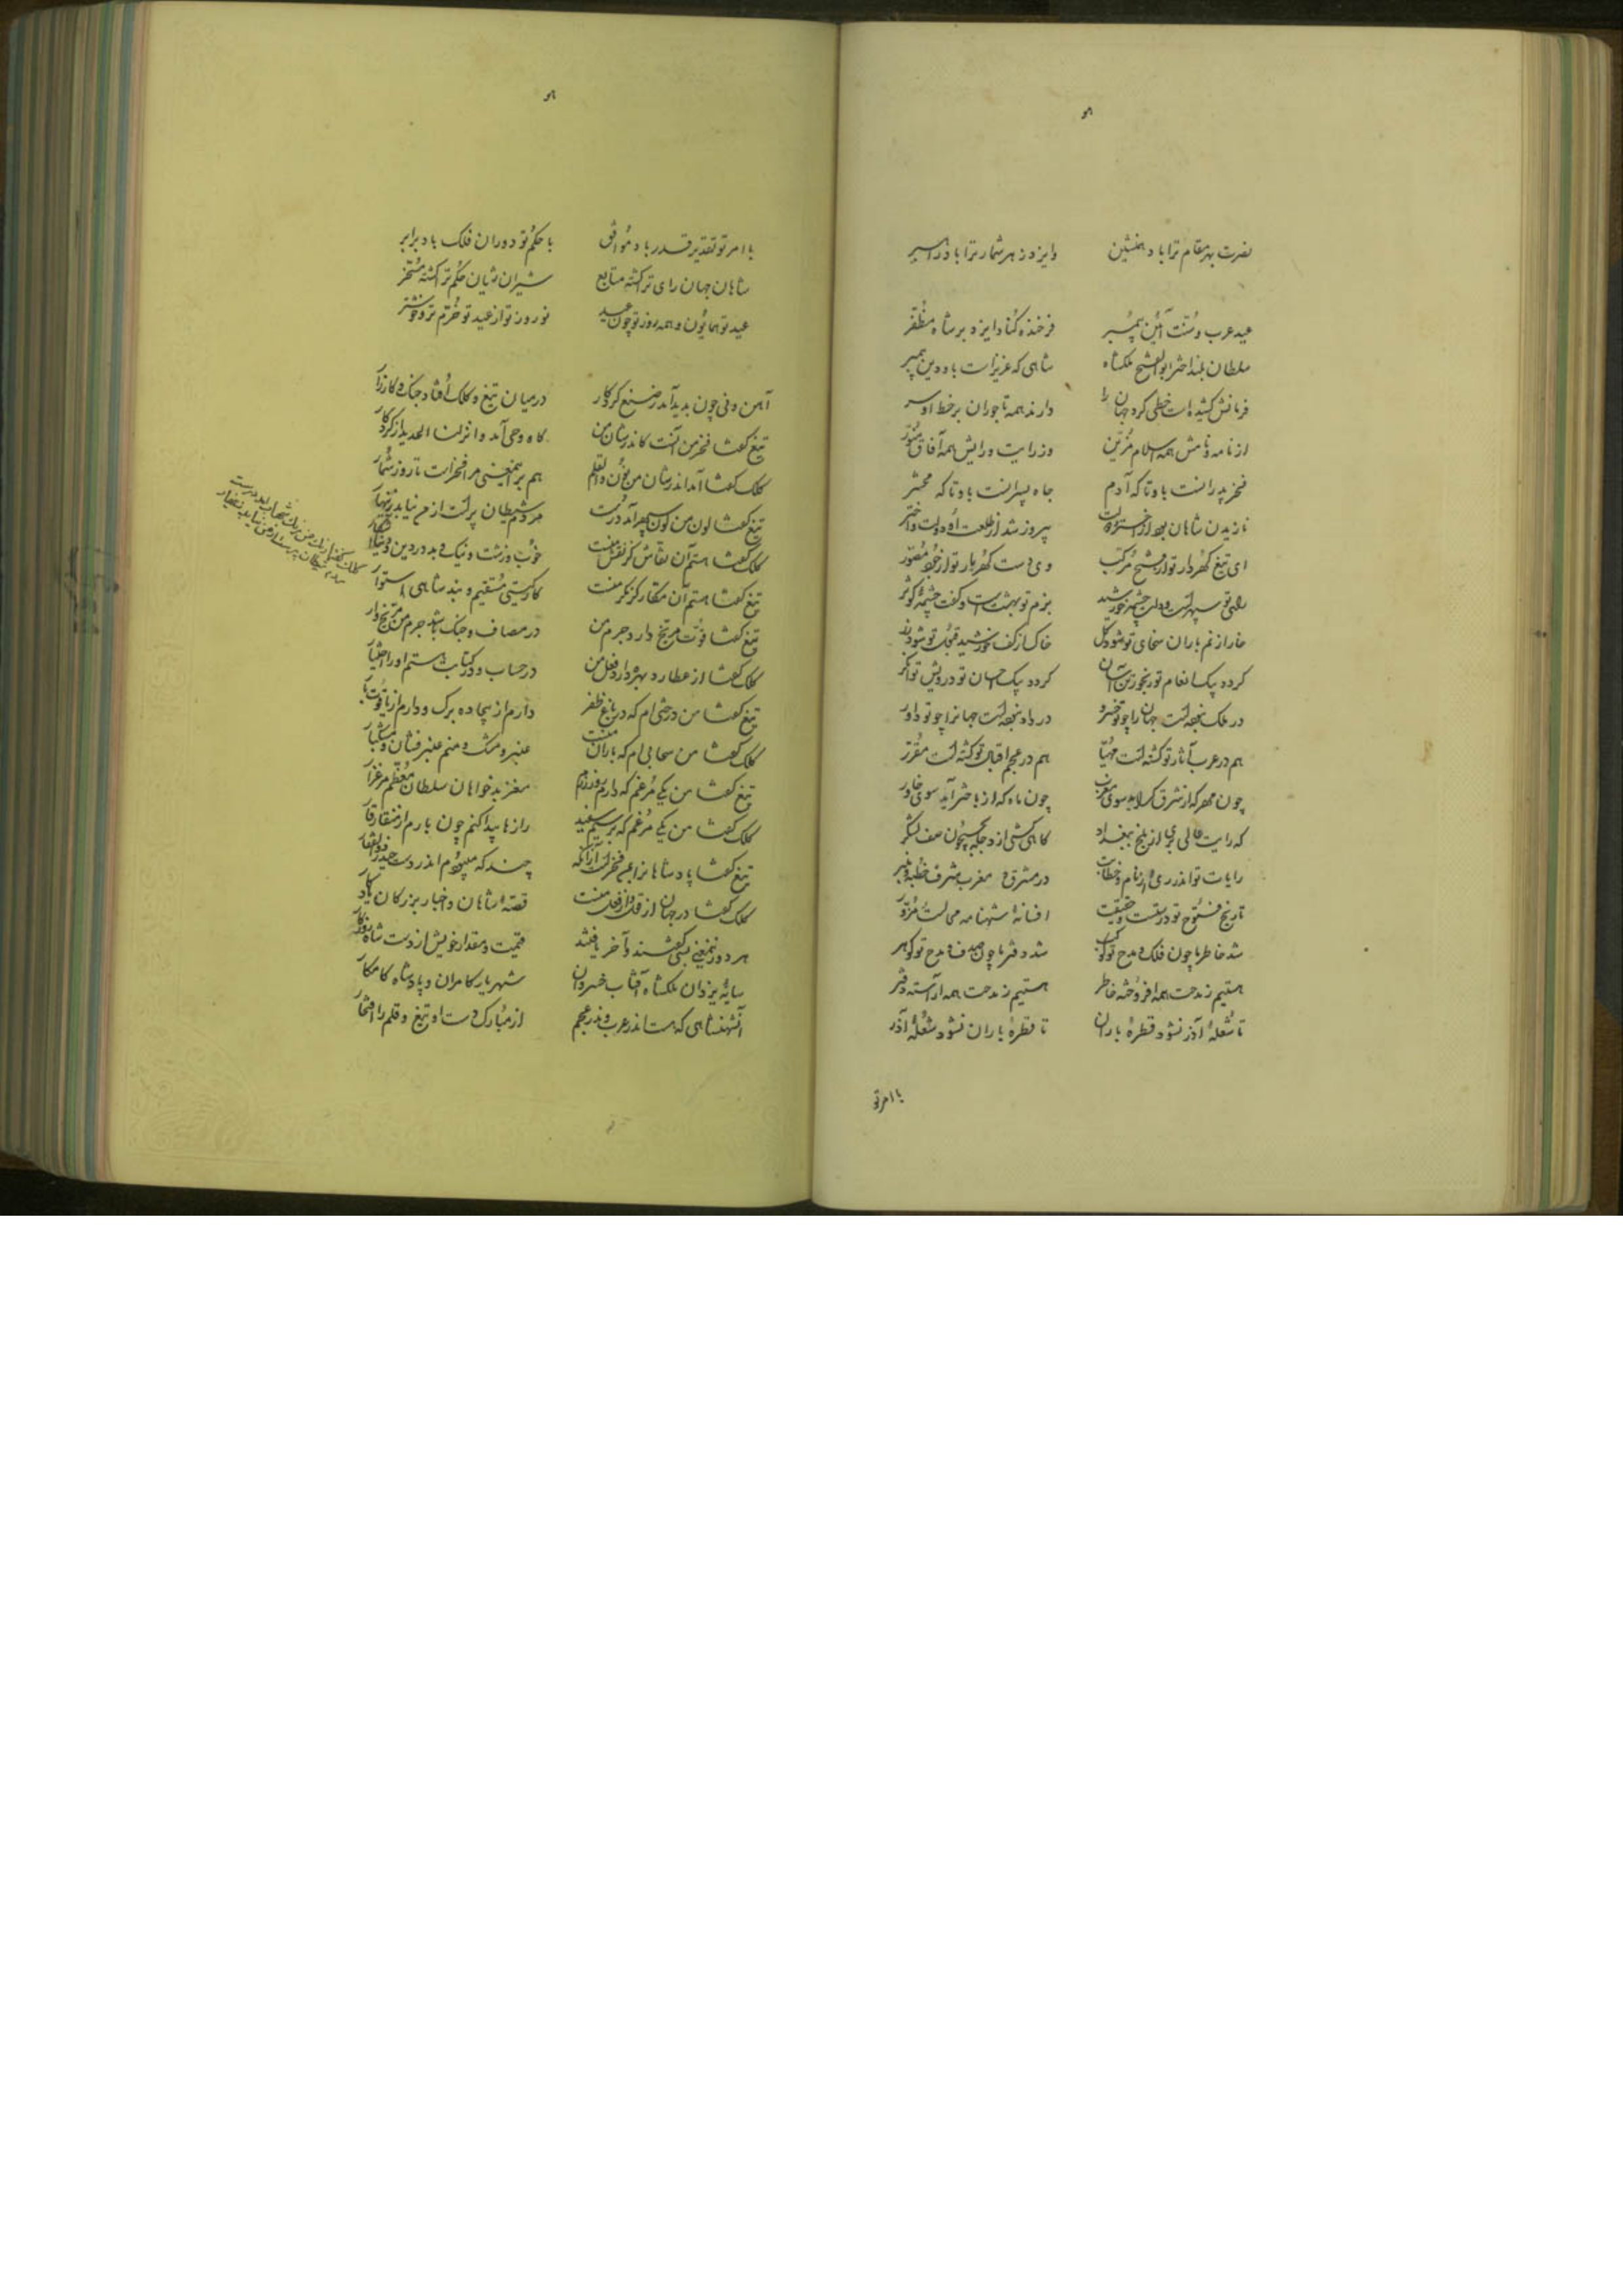 هو
نصرت بهر مقام ترا باد همنشین وایزد بهر شمار ترا باد
عید عرب و سنت آئین پیمبر فرخنده کناد ایزد بر شاه مظفر
سلطان بلند اختر ابوالفتح ملکشاه شاهی که عزیز است باو دین پیمبر
فرمانش کشیده است خطی گرد جهان را دارند همه تاجوران بر خط او سر
از نامه و نامش همه اسلام مزین وز رایت و رایش همه آفاق منور
فخر پدرانست باو تا که آدم جاه پسرانست باو تا که محشر
نازیدن شاهان بود از اختر و دولت پیروز شد از طلعت او دولت و اختر
ای تیغ گهردار تو از فتح مرکب وی دست گهربار تو از جود مصور
رای تو سپهر است و دولت چشمه خورشید بزم تو بهشت است و کفت چشمه کوثر
خار از نم باران سخای تو شود گل خاک از کف خورشید قبولت تو شود زر
گردد بیک انعام تو رنجور تن آسان گردد بیک احسان تو درویش توانگر
در ملک نبوده است جهان را چو تو خسرو در داد نبوده است جهانرا چو تو داور
هم در عرب آثار تو گشته است مهیا هم در عجم اقبال تو گشته است مقرر
چون مهر که از مشرق گراید سوی مغرب چون ماه که از باختر آید سوی خاور
که رایت عالی بری از بلخ ببغداد گاهی کشی از دجله بجیحون صف لشکر
رایات تو اندر ری و از نام و خطابت در مشرق و مغرب شرف خطبه و منبر
تاریخ فتوح تو درستست و حقیقت افسانه شهنامه می است مزور
شد خاطر ما چون فلک و مدح تو کوکب شد دفتر ما چون صدف و مدح تو گوهر
هستیم ز مدحت همه افروخته خاطر هستیم ز مدحت همه آراسته دفتر
تا شعله آذر نشود قطره باران تا قطره باران نشود شعله آذر
با امر تو
هو
با امر تو تقدیر قدر باد موافق با حکم تو دوران فلک باد برابر
شاهان جهان رای ترا گشته متابع شیران ژیان حکم ترا گشته مسخر
عید تو همایون و همه روز تو چون عید نوروز تو از عید تو خرم تر و خوشتر
آهن و نی چون پدید آمد ز صنع کردگار در میان تیغ و کلک افتاد جنگ و کارزار
تیغ گفتا فخر من آنست کاندر شان من گاه وحی آمد و انزلنا الحدید از کردگار
کلک گفتا آمد اندر شان من نون والقلم هم بر این معنی مرا فخر است تا روز شمار
تیغ گفتا لون من لون سپهر آمد درست مردم شیطان پرست از من نیابد زینهار
کلک گفتا هستم آن نقاش کز نقش منست خوب و زشت و نیک و بد در دین و دنیا آشکار
تیغ گفتا هستم آن مکار کز مکر منست کار گیتی مستقیم و بند شاهی استوار
تیغ گفتا قوت مریخ دارد جرم من در مصاف و جنگ باشد جرم من مریخ وار
کلک گفتا از عطارد بهره دارد فعل من در حساب و در کتاب هستم او را اختیار
تیغ گفتا من درختی ام که در باغ ظفر دارم از بیجاده برگ و دارم از یاقوت بار
کلک گفتا من سحابی ام که باران منست عنبر و مشک و منم عنبر فشان و مشکبار
تیغ گفتا من یکی مرغم که دارم روز رزم مغز بدخواهان سلطان معظم مرغزار
کلک گفتا من یکی مرغم که بر سیم سفید رازها پیدا کنم چون بارم از منقار قار
تیغ گفتا پادشاهانرا بمن فخر است از آنکه چند که میچون اندر دست حیدر ذوالفقار
کلک گفتا در جهان از قول و از فعل منست قصه شاهان و اخبار بزرگان یادگار
هر دو زین معنی بسی گفتند و آخر یافتند قیمت و مقدار خویش از دست شاه روزگار
سایه یزدان ملکشاه آفتاب خسروان شهریار کامران و پادشاه کامکار
آن شهنشاهی که هست اندر عرب وندر عجم از مبارک دست او تیغ و قلم را افتخار
کلک گفتا رنگ من رنگ شهاب آمد درست